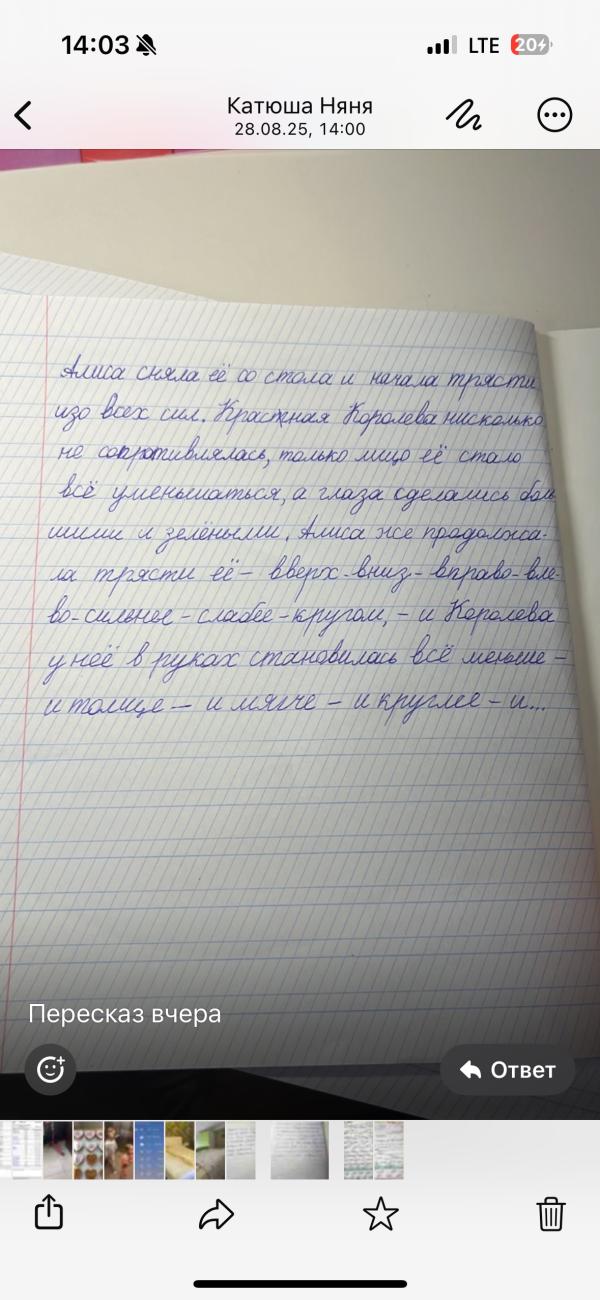 14:03
LTE 20
Катюша Няня
28.08.25, 14:00
Алиса сняла её со стола и начала трясти
изо всех сил. Крастная Королева нисколько
не сопротивлялась, только лицо её стало
всё уменьшаться, а глаза сделались боль
шими и зелёными. Алиса же продолжа-
ла трясти её – вверх-вниз-вправо-вле-
во-сильнее-слабее-кругом, – и Королева
у неё в руках становилась всё меньше –
и толще – и мягче – и круглее – и...
Пересказ вчера
Ответ